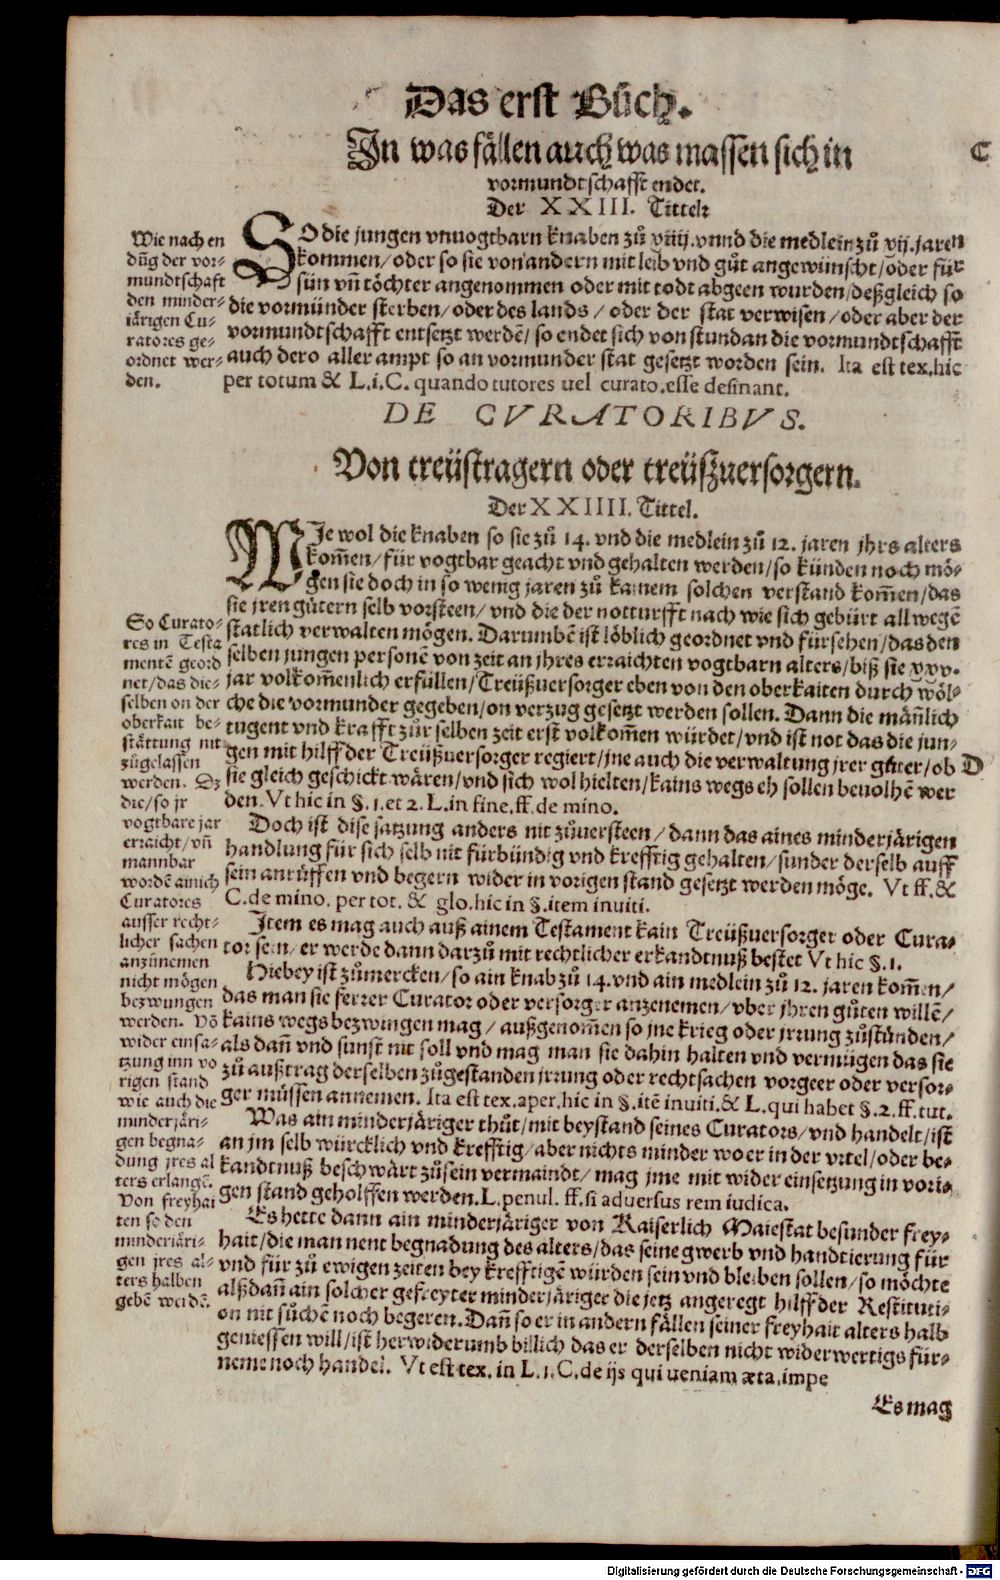 Das erst Bůch.
In was fällen auch was massen sich in
vormundtschafft endet.
Der XXIII. Tittel
C
Wie nach en
dũg der vor⸗
mundtschaft
den minder⸗
järigen Cu⸗
ratores ge⸗
ordnet wer⸗
den.
SO die jungen vnuogtbarn knaben zů xiiij. vnnd die medlein zů xij. jaren
kommen/ oder so sie von andern mit leib vnd gůt angewünscht/ oder für
sün vñ töchter angenommen oder mit todt abgeen wurden/ deßgleich so
die vormünder sterben/ oder des lands / oder der stat verwisen / oder aber der
vormundtschafft entsetzt werdẽ/ so endet sich von stundan die vormundtschafft
auch dero aller ampt so an vormunder stat gesetzt worden sein. Ita est tex. hic
per totum & L. i. C. quando tutores uel curato. esse desinant.
DE CVRATORIBVS.
Von treüstragern oder treüßuersorgern.
Der XXIIII. Tittel.
WJe wol die knaben so sie zů 14. vnd die medlein zů 12. jaren jhrs alters
kom̃en/ für vogtbar geacht vnd gehalten werden/ so künden noch mö⸗
gen sie doch in so wenig jaren zů kainem solchen verstand kom̃en/ das
sie jren gütern selb vorsteen/ vnd die der notturfft nach wie sich gebürt allwegẽ
statlich verwalten mögen. Darumbẽ ist löblich geordnet vnd fürsehen/ das den
selben jungen personẽ von zeit an jhres erraichten vogtbarn alters/ biß sie xxv.
jar volkom̃enlich erfüllen/ Treüßuersorger eben von den oberkaiten durch wöl⸗
che die vormunder gegeben/ on verzug gesetzt werden sollen. Dann die mäñlich
tugent vnd krafft zůr selben zeit erst volkom̃en würdet/ vnd ist not das die jun⸗
gen mit hilff der Treüßuersorger regiert/ jne auch die verwaltung jrer güter/ ob
sie gleich geschickt wären/ vnd sich wol hielten/ kains wegs eh sollen beuolhẽ wer
den. Vt hic in §. 1. et 2. L. in fine. ff. de mino.
D
So Curato⸗
res in Testa
mentẽ geord
net/ das die⸗
selben on der
oberkait be⸗
stättung nit
zůgelassen
werden. Dz
die/ so jr
vogtbare jar
erraicht/ vñ
mannbar
wordẽ ainich
Curatores
ausser recht⸗
licher sachen
anzůnemen
nicht mögen
bezwungen
werden. Võ
wider einsa⸗
tzung inn vo
rigen stand
wie auch die
minderjäri⸗
gen begna⸗
dung jres al
ters erlangẽ.
Von freyhai
ten so den
minderjäri⸗
gen jres al⸗
ters halben
gebẽ werdẽ.
Doch ist dise satzung anders nit zůuersteen/ dann das aines minderjärigen
handlung für sich selb nit fürbündig vnd krefftig gehalten/ sunder derselb auff
sein anrůffen vnd begern wider in vorigen stand gesetzt werden möge. Vt ff. &
C. de mino. per tot. & glo. hic in §. item inuiti.
Item es mag auch auß ainem Testament kain Treüßuersorger oder Cura⸗
tor sein/ er werde dann darzů mit rechtlicher erkandtnuß bestet Vt hic §. 1.
Hiebey ist zůmercken/ so ain knab zů 14. vnd ain medlein zů 12. jaren kom̃en/
das man sie ferrer Curator oder versorger anzenemen/ vber jhren gůten willẽ/
kains wegs bezwingen mag / außgenom̃en so jne krieg oder jrrung zůstünden/
als dañ vnd sunst nit soll vnd mag man sie dahin halten vnd vermügen das sie
zů außtrag derselben zůgestanden jrrung oder rechtsachen vorgeer oder versor⸗
ger müssen annemen. Ita est tex. aper. hic in §. itẽ inuiti. & L. qui habet §. 2. ff. tut.
Was ain minderjäriger thůt/ mit beystand seines Curators/ vnd handelt/ ist
an jm selb würcklich vnd krefftig/ aber nichts minder wo er in der vrtel/ oder be⸗
kandtnuß beschwärt zůsein vermaindt/ mag jme mit wider einsetzung in vori⸗
gen stand geholffen werden. L. penul. ff. si aduersus rem iudica.
Es hette dann ain minderjäriger von Kaiserlich Maiestat besunder frey⸗
hait/ die man nent begnadung des alters/ das seine gwerb vnd handtierung für
vnd für zů ewigen zeiten bey krefftigẽ würden sein vnd bleiben sollen/ so möchte
alßdañ ain solcher gefreyter minderjäriger die jetz angeregt hilff der Restituti⸗
on nit sůchẽ noch begeren. Dañ so er in andern fällen seiner freyhait alters halb
geniessen will/ ist herwiderumb billich das er derselben nicht widerwertigs für⸗
neme noch handel. Vt est tex. in L. 1. C. de ijs qui ueniam æta. impe
Es mag
Digitalisierung gefördert durch die Deutsche Forschungsgemeinschaft - DFG